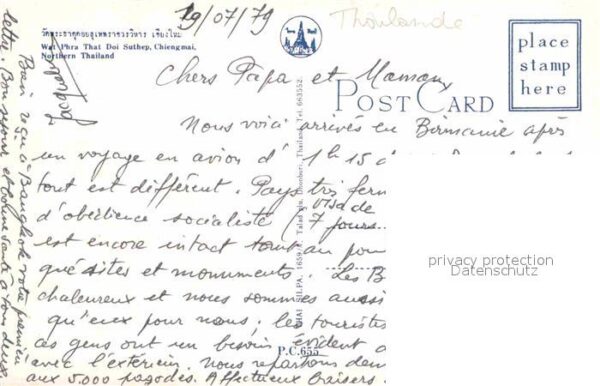 19/07/79
Thaïlande
วัดพระธาตุดอยสุเทพราชวรวิหาร เชียงใหม่
Wat Phra That Doi Suthep, Chiengmai,
Northern Thailand
place
stamp
here
POST CARD
Chers Papa et Maman,
Nous voici arrivés en Birmanie après
un voyage en avion d' 1h15
tout est différent. Pays très
d'obédience socialiste ( visa de
7 jours
est encore intact tant au
qué sites et monuments. Les B
chaleureux et nous sommes aussi
qu'eux pour nous; les touristes
ces gens ont un besoin évident
avec l'extérieur. Nous repartons
aux 5.000 pagodes. Affectueux baisers.
Jacques
Bien reçu à Bangkok votre première
lettre. Bon séjour et bonne santé à tous deux
THAI SILPA, 1659/ Talad Plu, Dhonburi, Thailand. Tel. 663552.
P.C. 655
privacy protection
Datenschutz